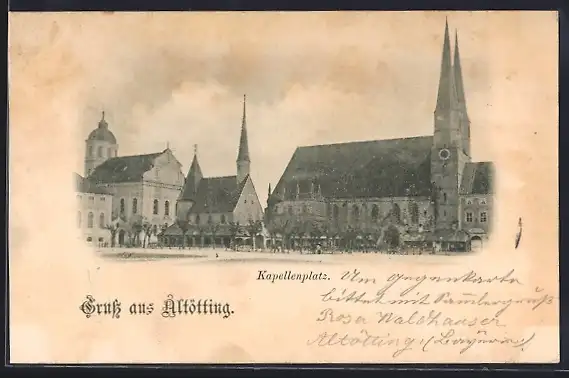 Kapellenplatz.
Gruß aus Altötting.
Um gegenkarte
bittet mit Sammlergruß
Rosa Waldhauser
Altötting, (Bayern)